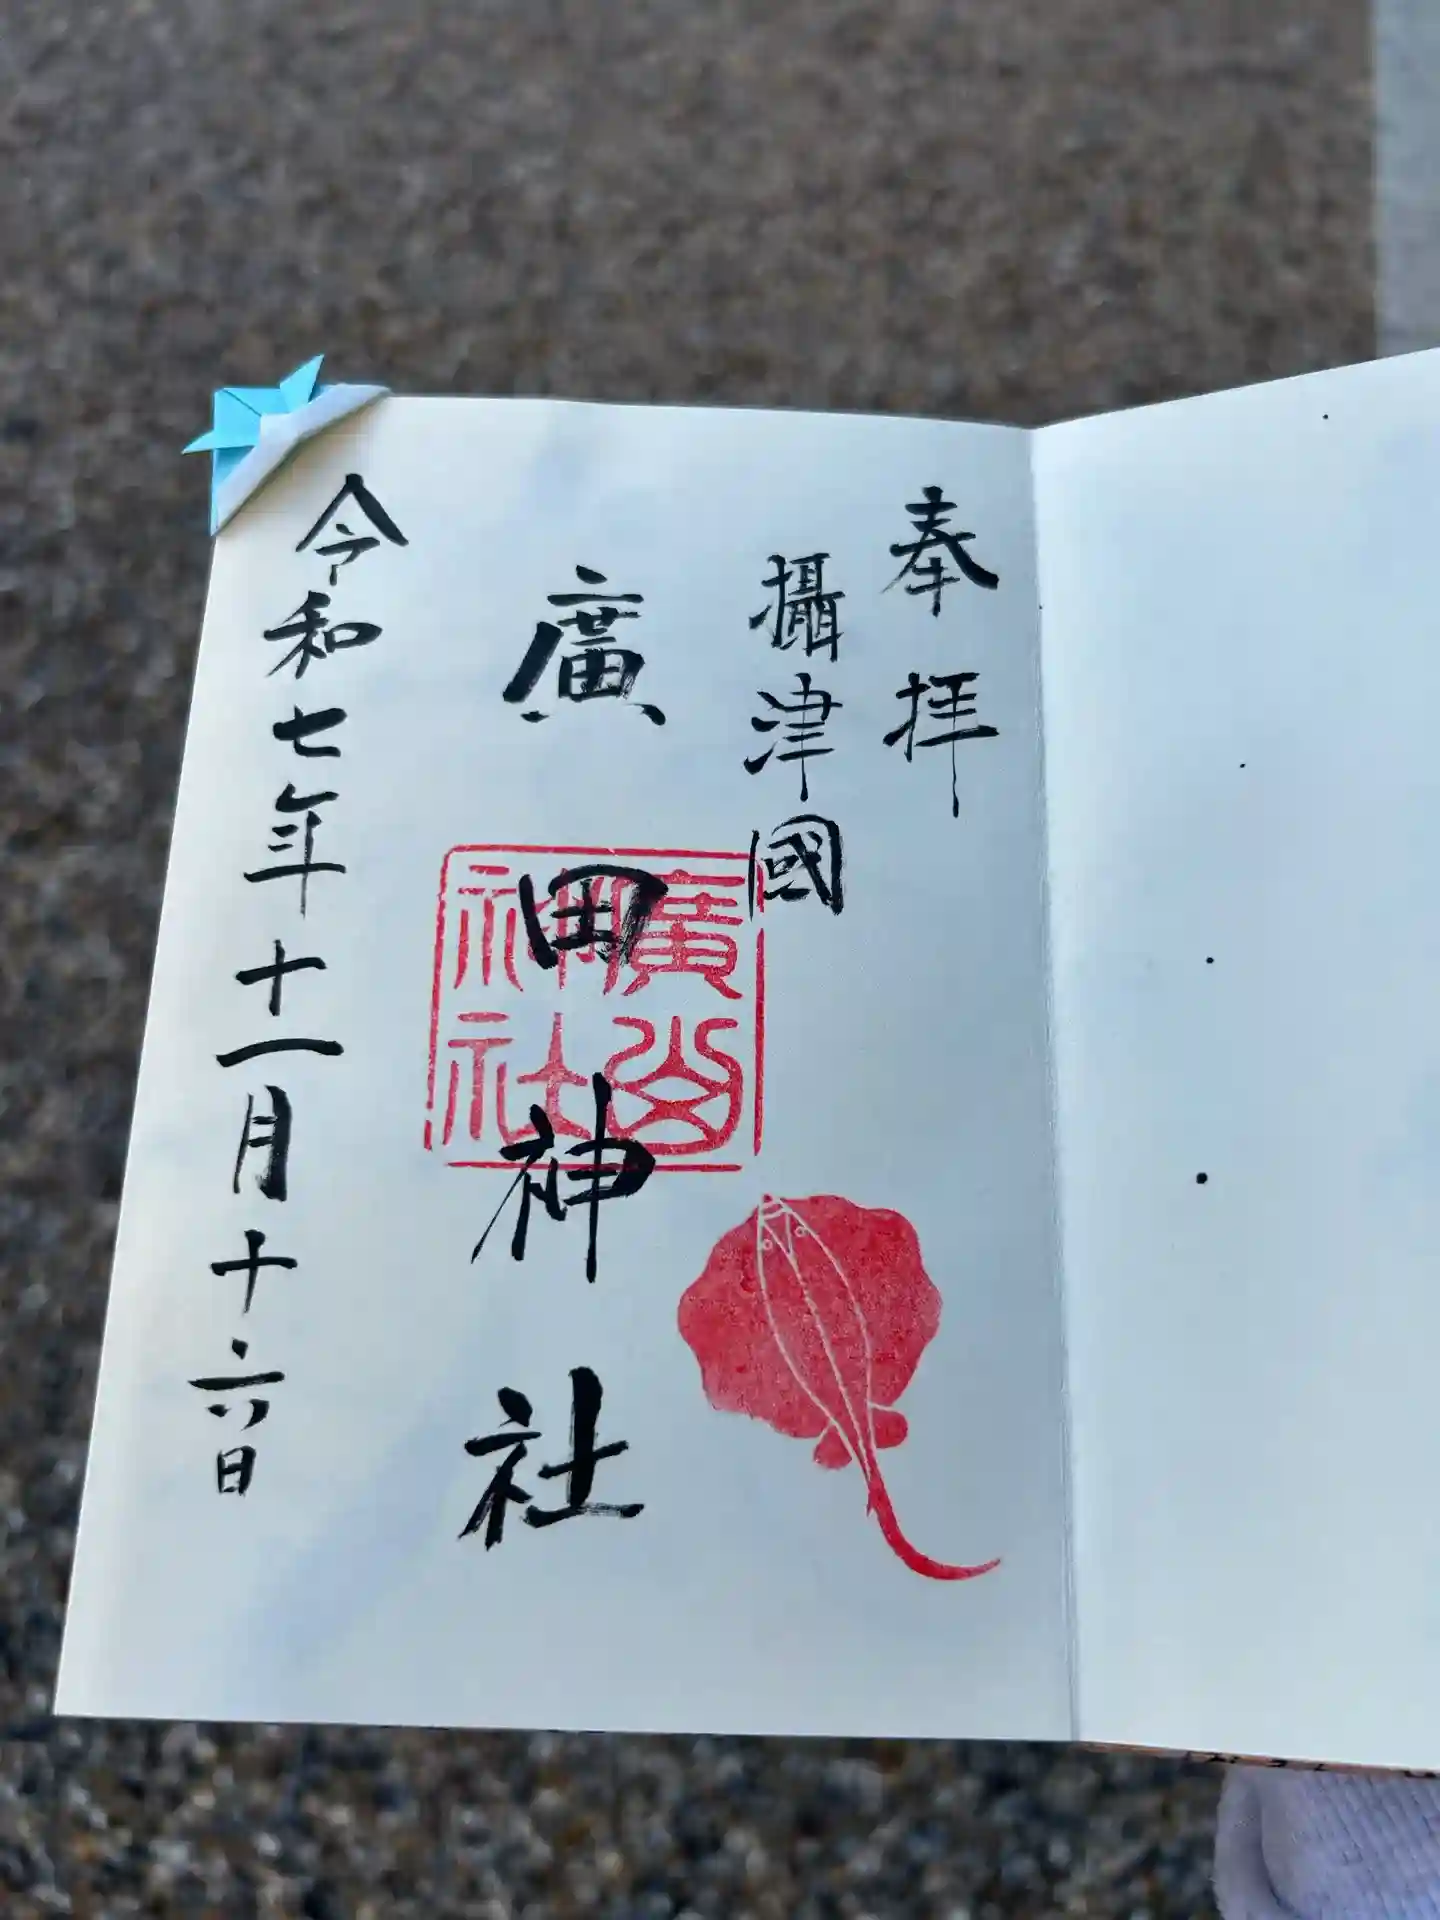 奉拝
攝津國
廣田神社
廣田神社
令和七年十一月十六日